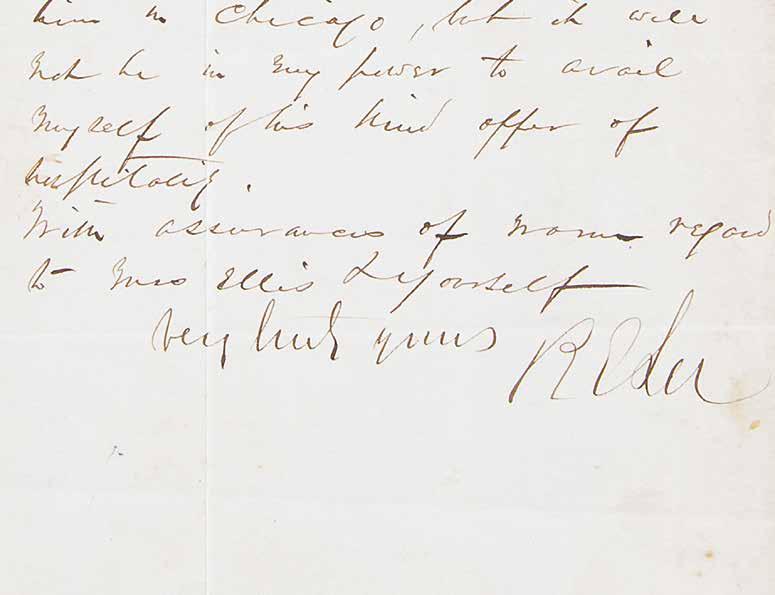 him in Chicago, but it will
not be in my power to avail
myself of his kind offer of
hospitality.
With assurances of warm regard
to Mrs Ellis & yourself
Very truly yours
R E Lee